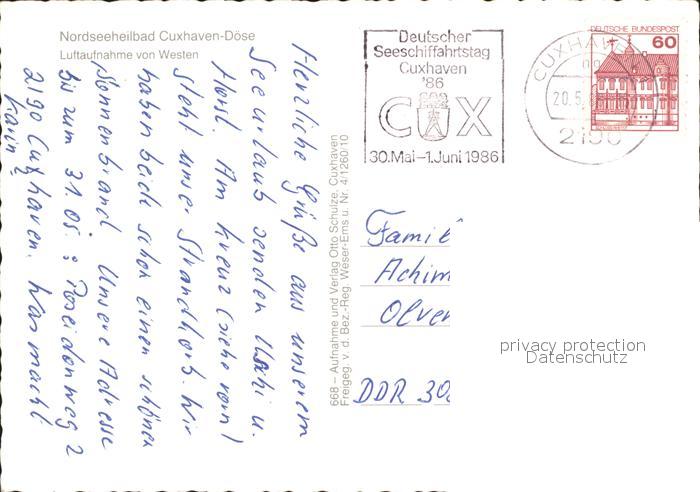 Nordseeheilbad Cuxhaven-Döse
Luftaufnahme von Westen
Herzliche Grüße aus unserem
Seeurlaub senden Uschi u.
Horst. Am Kreuz (siehe vorn)
steht unser Strandkorb. Wir
haben beide schon einen schönen
Sonnenbrand. Unsere Adresse
bis zum 31.05.: Poseidonweg 2
2190 Cuxhaven. Was macht
Karin
668 – Aufnahme und Verlag Otto Schulze, Cuxhaven
Freigeg. v. d. Bez.-Reg. Weser-Ems u. Nr. 4/1260/10
Deutscher
Seeschiffahrtstag
Cuxhaven
'86
CUX
30.Mai–1.Juni 1986
CUXHAVEN
20.5.
2190
DEUTSCHE BUNDESPOST
60
Famil
Achim
Olven
DDR 30
privacy protection
Datenschutz